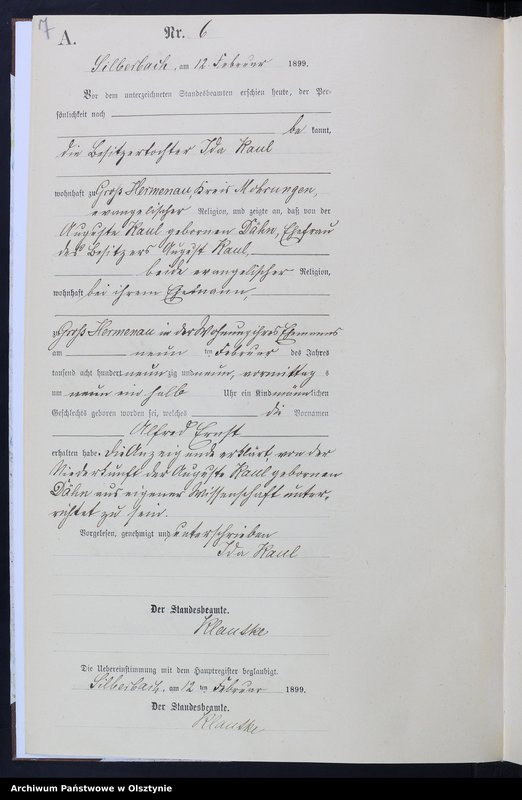 7
A.
Nr. 6
Silberbach, am 12 Februar 1899.
Vor dem unterzeichneten Standesbeamten erschien heute, der Per-
sönlichkeit nach
be kannt,
die Besitzertochter Ida Kaul
wohnhaft zu Groß Hermenau, Kreis Mohrungen,
evangelischer Religion, und zeigte an, daß von der
Auguste Kaul gebornen Dähn, Ehefrau
des Besitzers August Kaul,
beide evangelischer Religion,
wohnhaft bei ihrem Ehemann,
zu Groß-Hermenau in der Wohnung ihres Ehemannes
am neun ten Februar des Jahres
tausend acht hundert neun zig und neun, vormittag s
um neun ein halb Uhr ein Kind männlichen
Geschlechts geboren worden sei, welches die Vornamen
Alfred Ernst
erhalten habe. Die Anzeigende erklärt, von der
Niederkunft der Auguste Kaul gebornen
Dähn aus eigener Wissenschaft unter,
richtet zu sein.
Vorgelesen, genehmigt und unterschrieben
Ida Kaul
Der Standesbeamte.
Klauske
Die Uebereinstimmung mit dem Hauptregister beglaubigt.
Silberbach, am 12 ten Februar 1899.
Der Standesbeamte.
Klauske
Archiwum Państwowe w Olsztynie